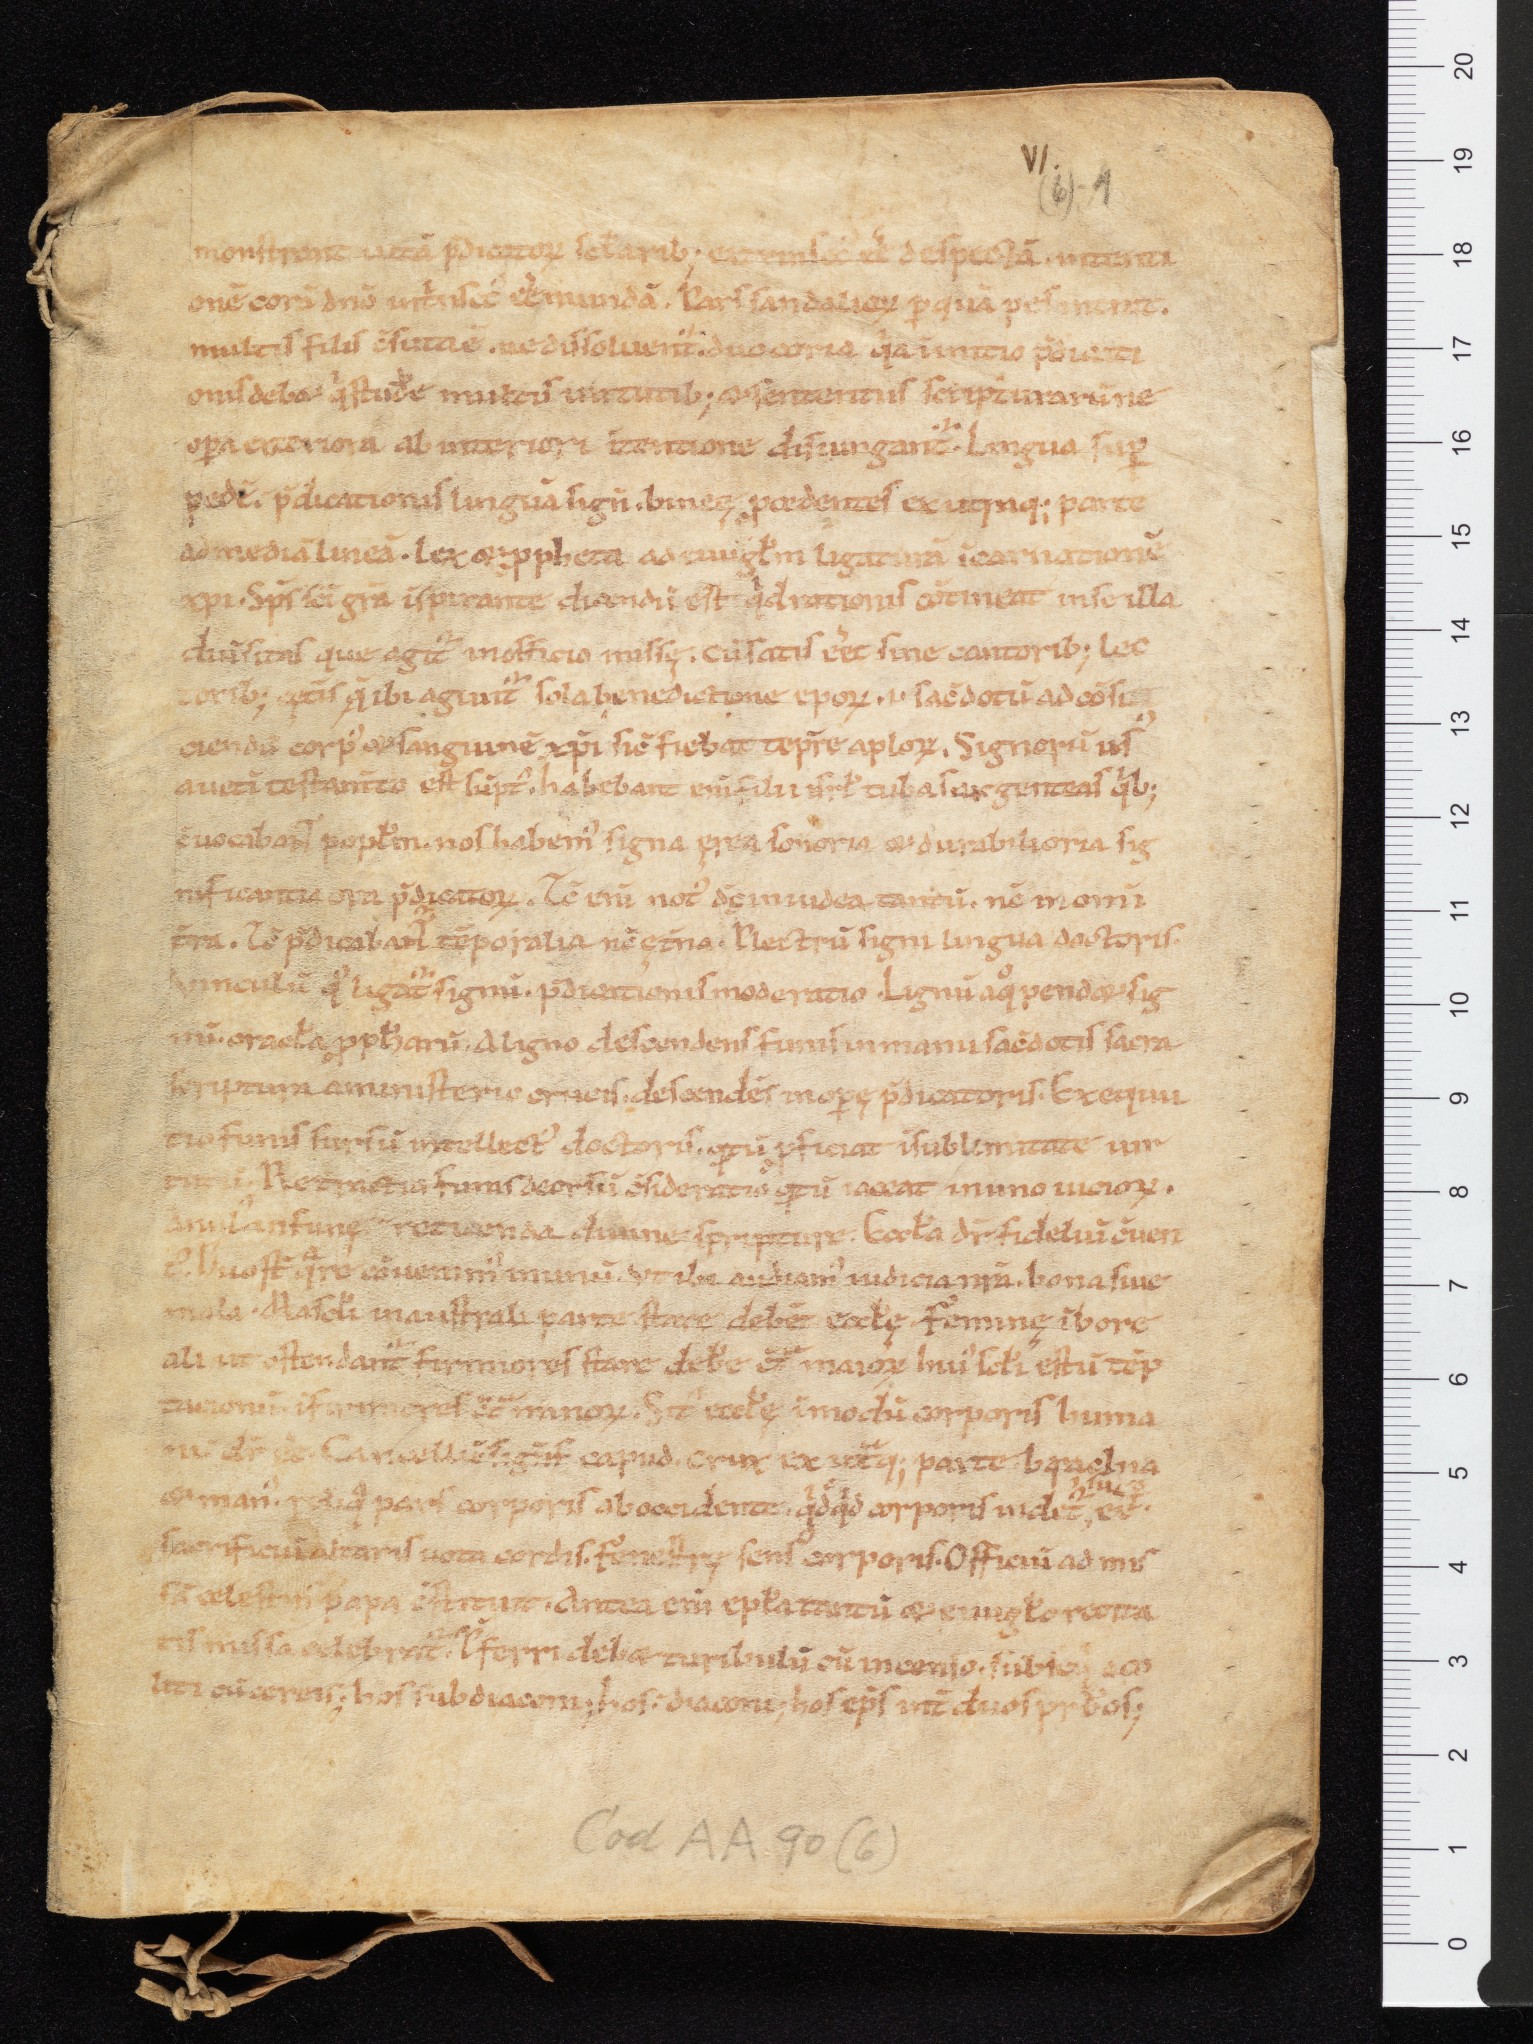 VI.
(6)-1
monstrant uitā p̄dicatoꝝ sclarib; extrinsec' ēē despectā. intenti
onē corā dnō intrisec' ēē mundā. Pars sandalioꝝ p quā pes intrat.
multis filis c̄suta ē. ne dissoluent᷑. duo coria q̄a initio p̄dicati
onis debꝫ q̄s studēe multis uirtutib; & sententiis scripturarū ne
opa exteriora ab interiori itentione disiungant᷑. Lingua sup
pedē. p̄dicationis linguā sign̄. lineę pcedentes ex utraq; parte
ad mediā lineā. lex & ppheta ad euuglm ligaturā icarnationē
xpi. Sps sc̄i gr̄a ispirante dicendū est q̄d rationis cōtineat in se illa
diuisitas que agit᷑ in officio missę. cū satis eēt sine cantorib; lec
torib; cętis q̄ ibi agunt᷑ sola benedictione epoꝝ. ł sac̄dotū ad cōfi
ciendū corp' & sanguinē xp̄i sic fiebat tepr̄e aploꝝ. Signorū us'
a ueti testam̄to est sūpt'. habebant eni filii isrl tubas argenteas q̄b;
c̄uocabant poplm. nos habem' signa ęrea sonoria & durabilioria sig
nificantia ora p̄dicatoꝝ. Tc̄ eni not' ds̄ in iudea tantū. nc̄ in omni
tr̄a. Tc̄ p̄dicabant᷑ tēporalia nc̄ ęt̄na. Plectrū signi lingua doctoris.
Uinculū q̄ ligat᷑ signū. p̄dicationis moderatio. Lignū a quo pendꝫ sig
nū. oracla ppharū. A ligno descendens funis in manu sac̄dotis sacra
scriptura a ministerio crucis. descendēs in opę p̄dicatoris. Exequu
tio funis sursū intellect' doctoris. qtū pficiat i sublimitate uir
tutū. Retractio funis deorsū c̄sideratio qtū iaceat in imo uicioꝝ.
Anul' in funę reticenda diuine scripture. Eccla dr̄ fideliū c̄uen
t'. Duo st̄ q̄re cōuenim' in unū. ut ibi audiam' iudicia nr̄a. bona siue
mala. Mascli in australi parte stare debēt ecclę feminę i bore
ali ut ostendant᷑ firmiores stare debēe c̄t̄ maioꝝ hui' scli estū tēp
tacionū. ifirmiores c̄t̄ minoꝝ. Sit᷑ ecclę i modū corporis huma
ni dr̄ ēē. Cancellū signif capud. Crux ex utraq; parte brachia
& man'. reliq̄ pars corporis ab occidente. q̄dq̄d corporis uidet᷑ eē.
sacrificiū altaris uota cordis. fenestrę sens' corporis. Officiū ad mis
sā celestin' papa istituit. Antea eni epla tantū & euuglo recita
tis missa celebrat᷑. P'ferri debꝫ turibulū cū incenso. subseq̄ aco
liti cū cereis; hos subdiaconi; hos. diaconi; hos eps int̄ duos prb̄os;
Cod AA 90 (6)